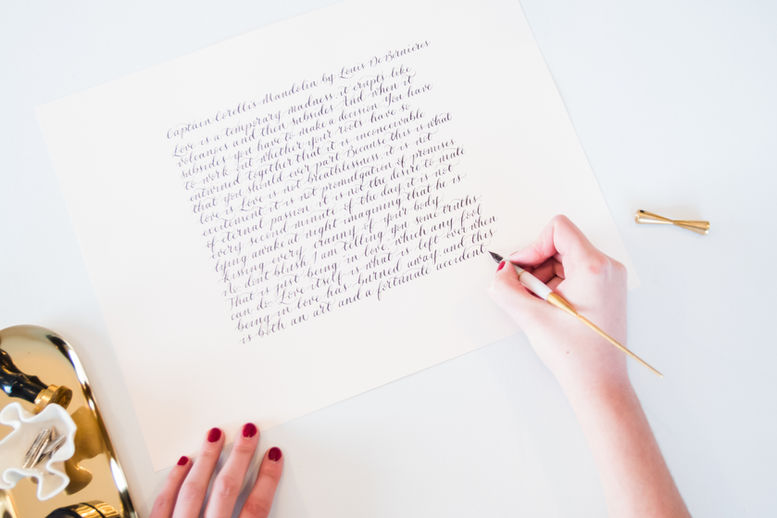 Captain Corelli's Mandolin by Louis De Bernieres
Love is a temporary madness, it erupts like
volcanoes and then subsides. And when it
subsides you have to make a decision. You have
to work out whether your roots have so
entwined together that it is inconceivable
that you should ever part. Because this is what
love is. Love is not breathlessness, it is not
excitement, it is not promulgation of promises
of eternal passion, it is not the desire to mate
every second minute of the day, it is not
lying awake at night imagining that he is
kissing every cranny of your body.
No, don't blush, I am telling you some truths.
That is just being in love, which any fool
can do. Love itself is what is left over when
being in love has burned away, and this
is both an art and a fortunate accident